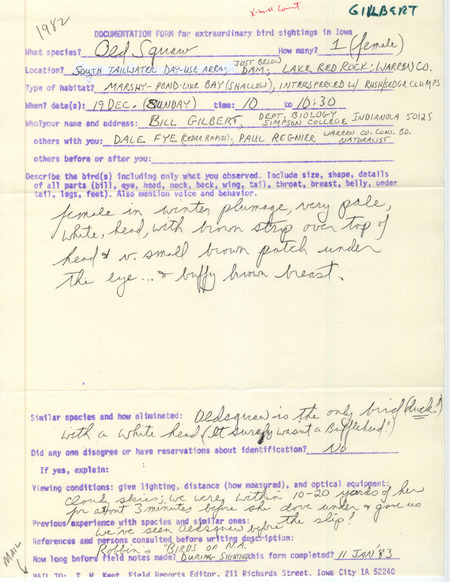 GILBERT
1982
DOCUMENTATION FORM for extraordinary bird sightings in Iowa
What species? Old Squaw How many? 1 (female)
Location? SOUTH TAILWATER DAY-USE AREA; JUST BELOW DAM; LAKE RED ROCK; WARREN CO.
Type of habitat? MARSHY-POND-LIKE BAY (SHALLOW), INTERSPERCED W/ RUSH/SEDGE CLUMPS
When? date(s): 19 DEC. (SUNDAY) time: 10 to 10:30
Who? your name and address: BILL GILBERT, DEPT. BIOLOGY SIMPSON COLLEGE, INDIANOLA 50125
others with you: DALE FYE (CEDAR RAPIDS), PAUL REGNIER WARREN CO. CONS. BD. NATURALIST
others before or after you:
Describe the bird(s) including only what you observed. Include size, shape, details
of all parts (bill, eye, head, neck, back, wing, tail, throat, breast, belly, under
tail, legs, feet). Also mention voice and behavior.
female in winter plumage, very pale,
white, head, with brown strip over top of
head & v. small brown patch under
the eye... & buffy brown breast.
Similar species and how eliminated: Oldsquaw is the only bird (duck!)
with a white head (It surely wasn't a Bufflehead!)
Did any one disagree or have reservations about identification? No
If yes, explain:
Viewing conditions: give lighting, distance (how measured), and optical equipment:
cloudy skies; we were within 10-20 yards of her
for about 3 minutes before she dove under & gave us
the slip!
Previous experience with species and similar ones:
we've seen Oldsquaw before
References and persons consulted before writing description:
Robbins' BIRDS OF N.A.
How long before field notes made? DURING SIGHTING this form completed? 11 JAN '83
MAIL
MAIL TO: T. H. Kent, Field Reports Editor, 211 Richards Street, Iowa City IA 52240